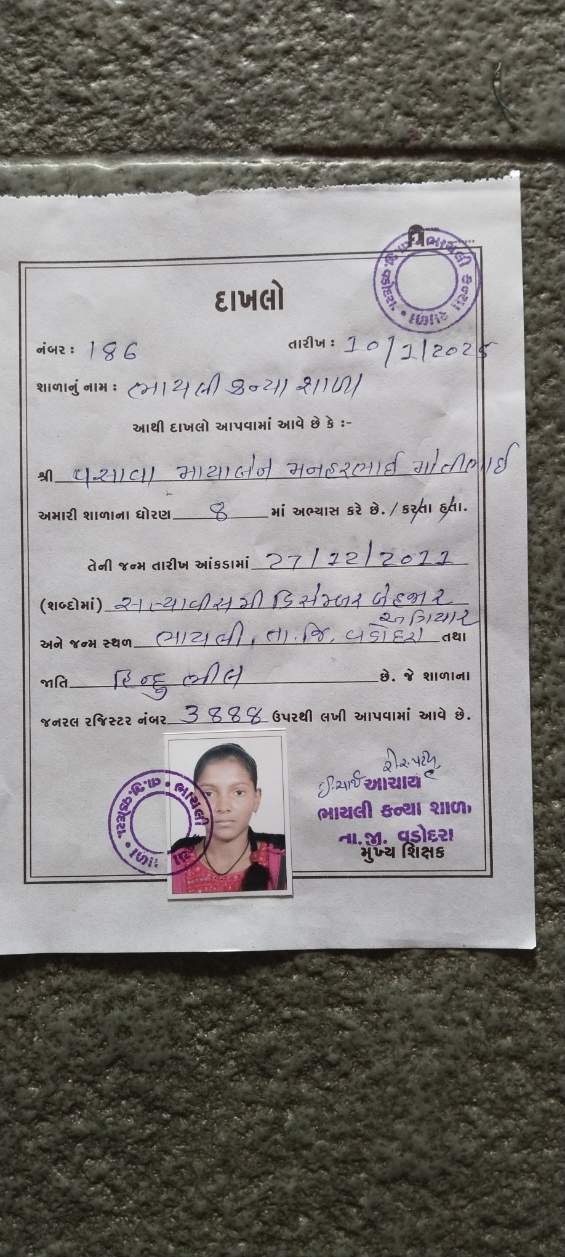 દાખલો
નંબર : 186 તારીખ : 10/1/2025
શાળાનું નામ : ભાયલી કન્યા શાળા
આથી દાખલો આપવામાં આવે છે કે :-
શ્રી વસાવા માયાબેન મનહરભાઈ મોતીભાઈ
અમારી શાળાના ધોરણ 8 માં અભ્યાસ કરે છે. / કરતા હતા.
તેની જન્મ તારીખ આંકડામાં 27/12/2011
(શબ્દોમાં) સત્યાવીસમી ડિસેમ્બર બેહજાર
અગિયાર
અને જન્મ સ્થળ ભાયલી, તા.જિ. વડોદરા તથા
જાતિ હિન્દુ ભીલ છે. જે શાળાના
જનરલ રજિસ્ટર નંબર 3888 ઉપરથી લખી આપવામાં આવે છે.
આચાર્ય
ભાયલી કન્યા શાળા
તા.જી. વડોદરા
મુખ્ય શિક્ષક